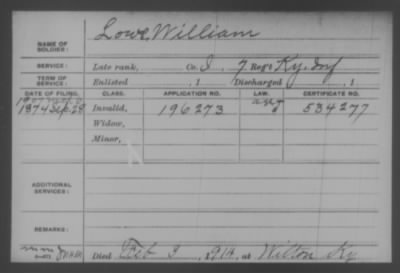 NAME OF SOLDIER: Lowe, William
SERVICE: Late rank, Co. I 7 Reg't Ky. Inf
TERM OF SERVICE: Enlisted , 1 Discharged , 1
DATE OF FILING. CLASS. APPLICATION NO. LAW. CERTIFICATE NO.
1874 Sep. 28 Invalid, 196273 534277
Widow,
Minor,
ADDITIONAL SERVICES:
REMARKS:
Died Feb 3, 1914, at Wilton Ky